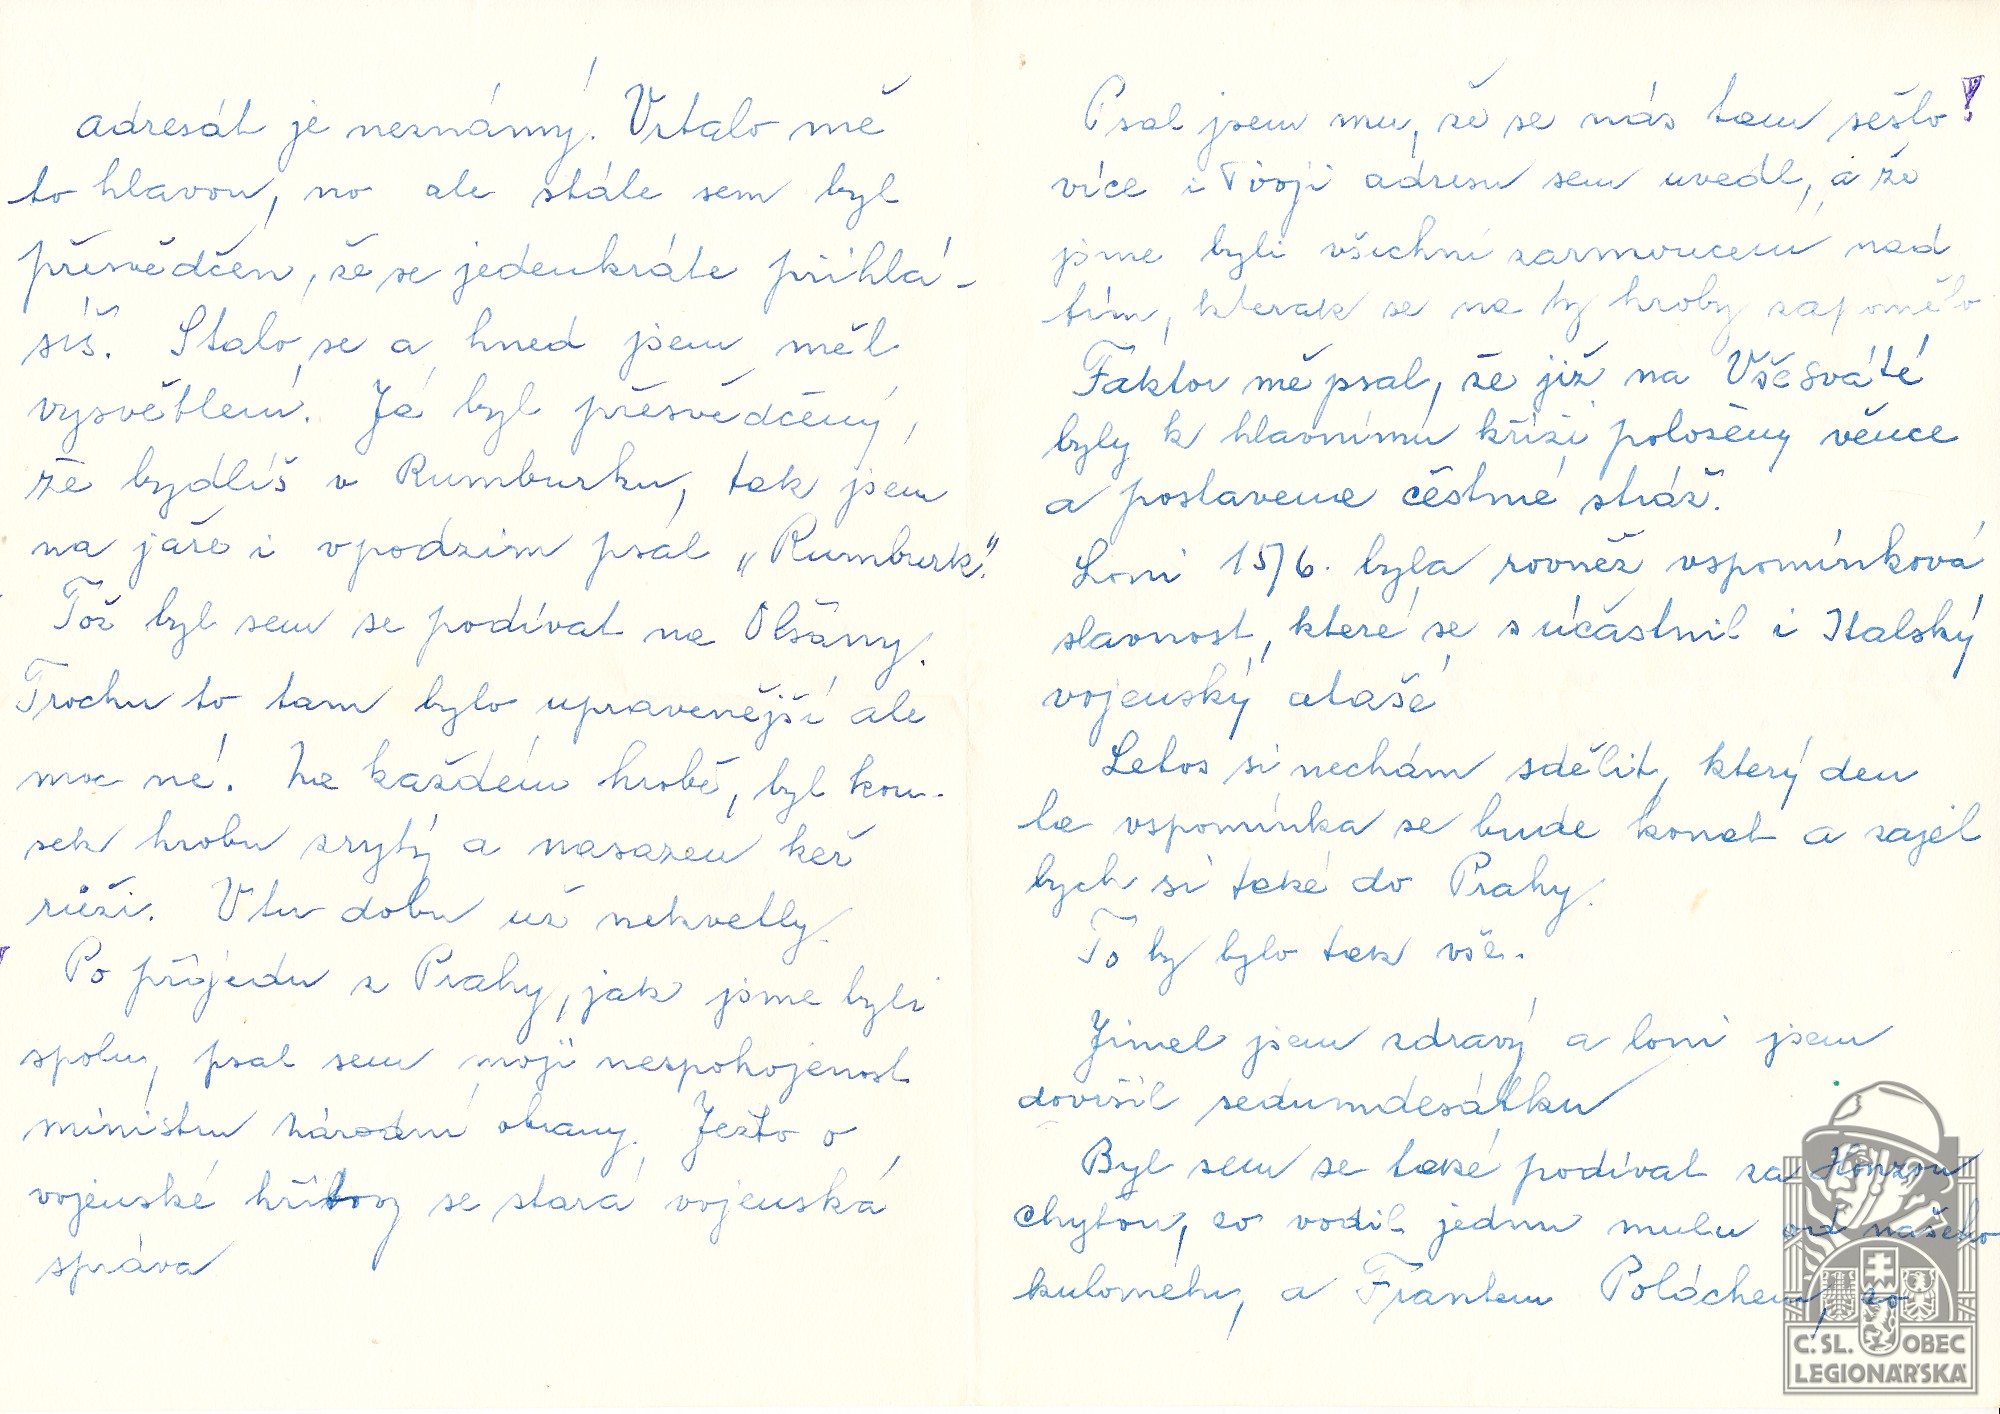 adresát je neznámý! Vrtalo mě
to hlavou, no ale stále sem byl
přesvědčen, že se jedenkráte přihlá-
síš. Stalo se a hned jsem měl
vysvětlení. Já byl přesvědčený,
že bydlíš v Rumburku, tak jsem
na jaře i vpodzim psal „Rumburk".
Tož byl sem se podívat na Olšany.
Trochu to tam bylo upravenější ale
moc né. Na každém hrobě, byl kou-
sek hrobu zrytý a nasazen keř
růži. Vtu dobu už nekvetly.
Po příjedu z Prahy, jak jsme byli
spolu, psal sem moji nespokojenost
ministru národní obrany. Ježto o
vojenské hřbitovy se stará vojenská
správa
Psal jsem mu, že se nás tam sešlo!
více i Tvoji adresu sem uvedl, a že
jsme byli všichni zarmouceni nad
tím, kterak se na ty hroby zapomělo
Faktor mě psal, že již na Všesváté
byly k hlavnímu kříži položeny věnce
a postavena čestná stráž.
Loni 15/6. byla rovněž vspomínková
slavnost, které se súčastnil i Italský
vojenský ataše
Letos si nechám sdělit, který den
ta vspomínka se bude konat a zajel
bych si také do Prahy.
To by bylo tak vše.
Jinel jsem zdravý a loni jsem
dovršil sedumdesátku
Byl sem se také podívat za Honzou
Chytou, co vodil jednu mulu od našeho
kulometu, a Frantou Poláchem, co
Č. SL. OBEC
LEGIONÁŘSKÁ